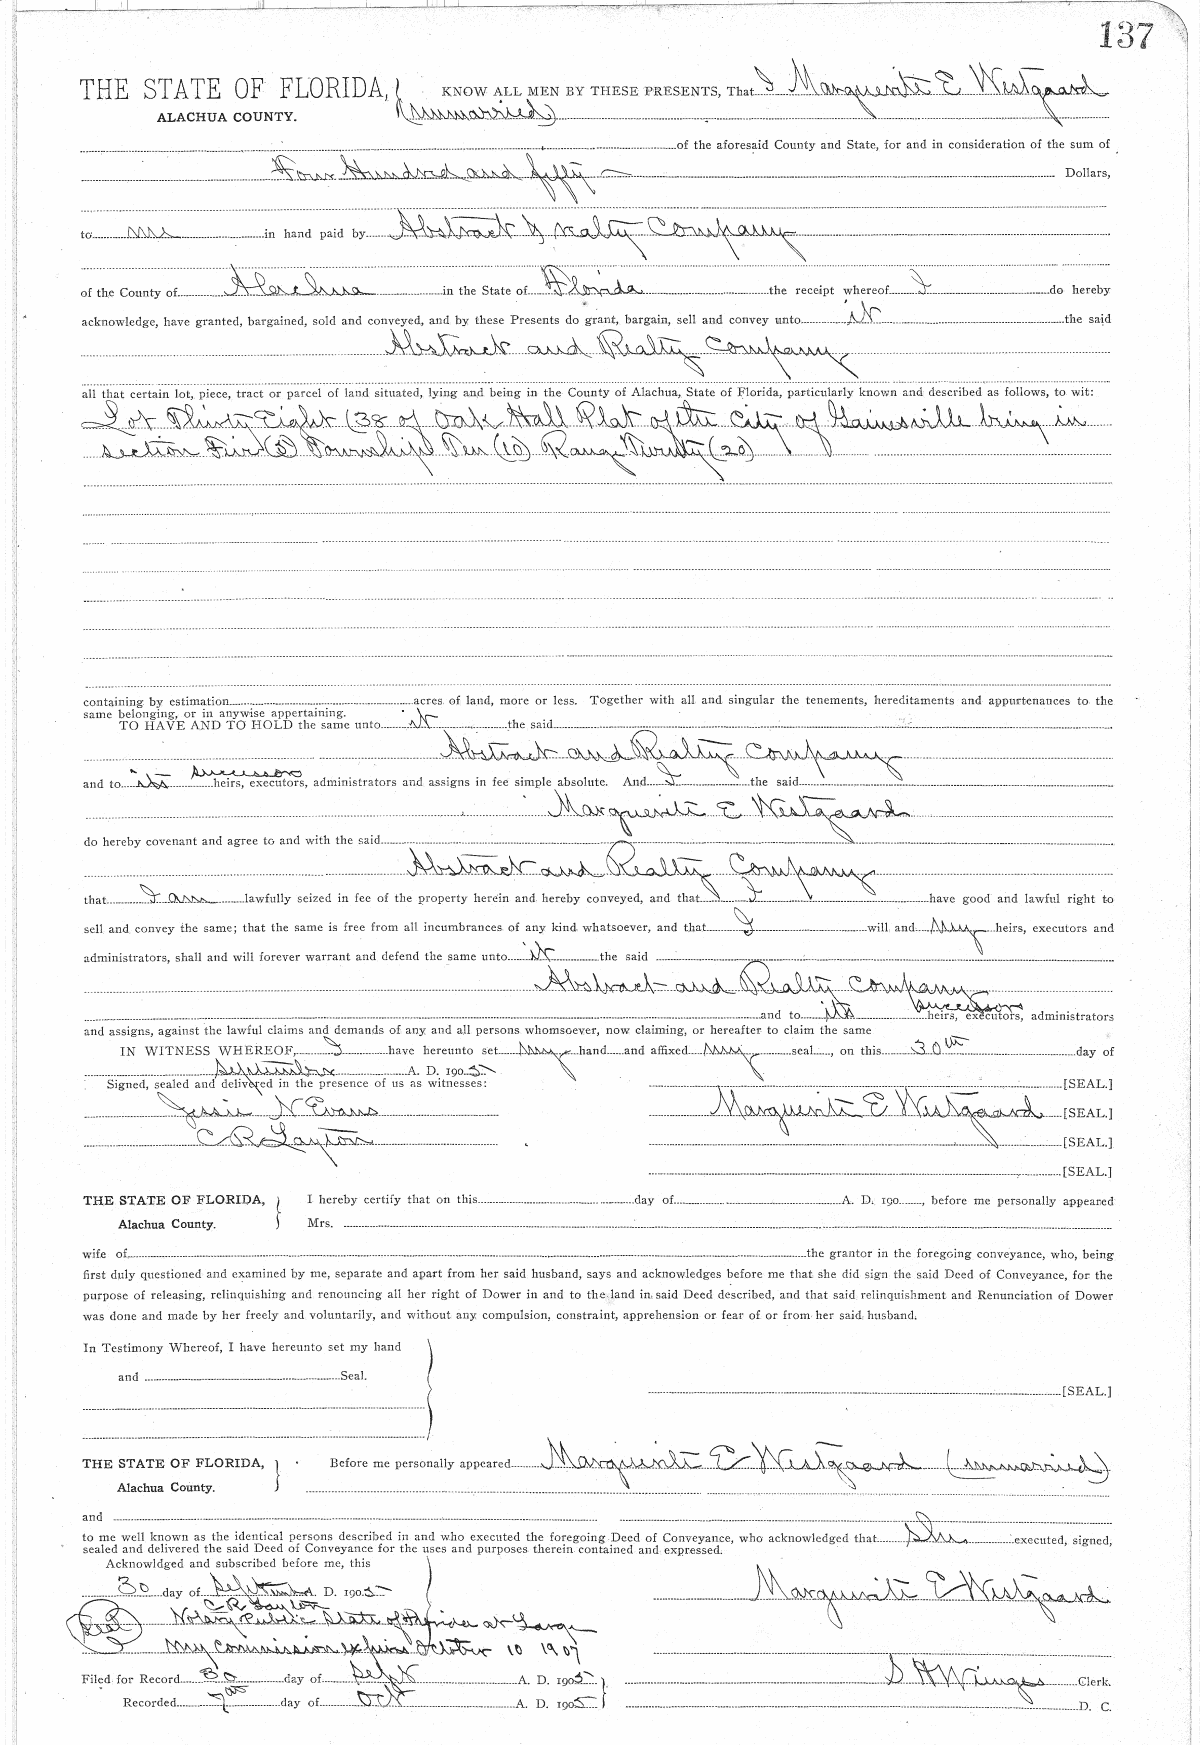 137
THE STATE OF FLORIDA, KNOW ALL MEN BY THESE PRESENTS, That I Marguerite E Westgaard
ALACHUA COUNTY. (unmarried)
of the aforesaid County and State, for and in consideration of the sum of
Four Hundred and fifty Dollars,
to me in hand paid by Abstract & Realty Company
of the County of Alachua in the State of Florida the receipt whereof I do hereby
acknowledge, have granted, bargained, sold and conveyed, and by these Presents do grant, bargain, sell and convey unto it the said
Abstract and Realty Company
all that certain lot, piece, tract or parcel of land situated, lying and being in the County of Alachua, State of Florida, particularly known and described as follows, to wit:
Lot Thirty Eight (38 of Oak Hall Plat of the City of Gainesville being in
section Five (5) Township Ten (10) Range Twenty (20)
containing by estimation acres of land, more or less. Together with all and singular the tenements, hereditaments and appurtenances to the
same belonging, or in anywise appertaining.
TO HAVE AND TO HOLD the same unto it the said
Abstract and Realty Company
and to its successors heirs, executors, administrators and assigns in fee simple absolute. And I the said
Marguerite E Westgaard
do hereby covenant and agree to and with the said
Abstract and Realty Company
that I am lawfully seized in fee of the property herein and hereby conveyed, and that I have good and lawful right to
sell and convey the same; that the same is free from all incumbrances of any kind whatsoever, and that I will and my heirs, executors and
administrators, shall and will forever warrant and defend the same unto it the said
Abstract and Realty Company
and to its successors heirs, executors, administrators
and assigns, against the lawful claims and demands of any and all persons whomsoever, now claiming, or hereafter to claim the same
IN WITNESS WHEREOF, I have hereunto set my hand and affixed my seal, on this 30th day of
September A. D. 1905
Signed, sealed and delivered in the presence of us as witnesses: [SEAL.]
Jessie N Evans Marguerite E Westgaard [SEAL.]
C R Layton [SEAL.]
[SEAL.]
THE STATE OF FLORIDA, I hereby certify that on this day of A. D. 190 , before me personally appeared
Alachua County. Mrs.
wife of the grantor in the foregoing conveyance, who, being
first duly questioned and examined by me, separate and apart from her said husband, says and acknowledges before me that she did sign the said Deed of Conveyance, for the
purpose of releasing, relinquishing and renouncing all her right of Dower in and to the land in said Deed described, and that said relinquishment and Renunciation of Dower
was done and made by her freely and voluntarily, and without any compulsion, constraint, apprehension or fear of or from her said husband.
In Testimony Whereof, I have hereunto set my hand
and Seal.
[SEAL.]
THE STATE OF FLORIDA, Before me personally appeared Marguerite E Westgaard (unmarried)
Alachua County.
and
to me well known as the identical persons described in and who executed the foregoing Deed of Conveyance, who acknowledged that she executed, signed,
sealed and delivered the said Deed of Conveyance for the uses and purposes therein contained and expressed.
Acknowldged and subscribed before me, this
30 day of September A. D. 1905 Marguerite E Westgaard
C R Layton
Seal Notary Public State of Florida at Large
My commission expires October 10 1907
Filed for Record 30 day of Sept A. D. 1905 S H Wienges Clerk.
Recorded 7th day of Oct A. D. 1905 D. C.